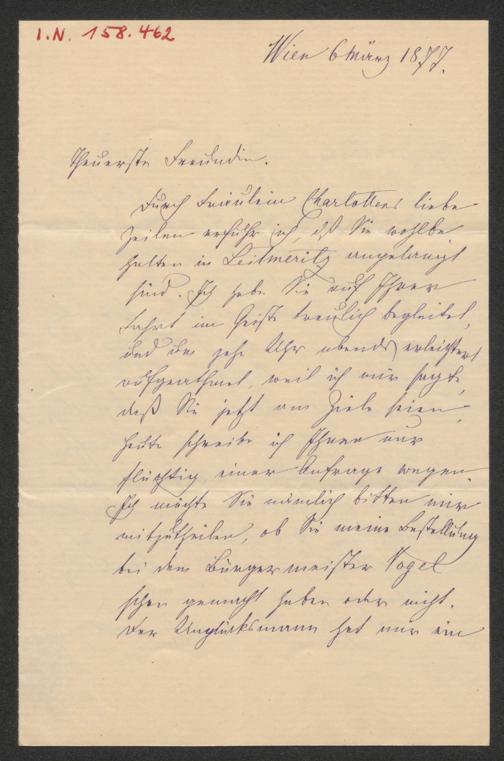 I.N. 158.462
Wien 6 März 1877.
Theuerste Freundin.
Durch Fräulein Charlottens liebe
Zeilen erfuhr ich, daß Sie wohlbe
halten in Leitmeritz angelangt
sind. Ich habe Sie auf Ihrer
Fahrt im Geiste treulich begleitet,
und um zehn Uhr abends erleichtert
aufgeathmet, weil ich mir sagte,
daß Sie jetzt am Ziele seien.
Heute schreibe ich Ihnen nur
flüchtig einer Anfrage wegen.
Ich möchte Sie nämlich bitten mir
mitzutheilen, ob Sie meine Bestellung
bei dem Bürgermeister Vogel
schon gemacht haben oder nicht.
Der Unglücksmann hat mir ein